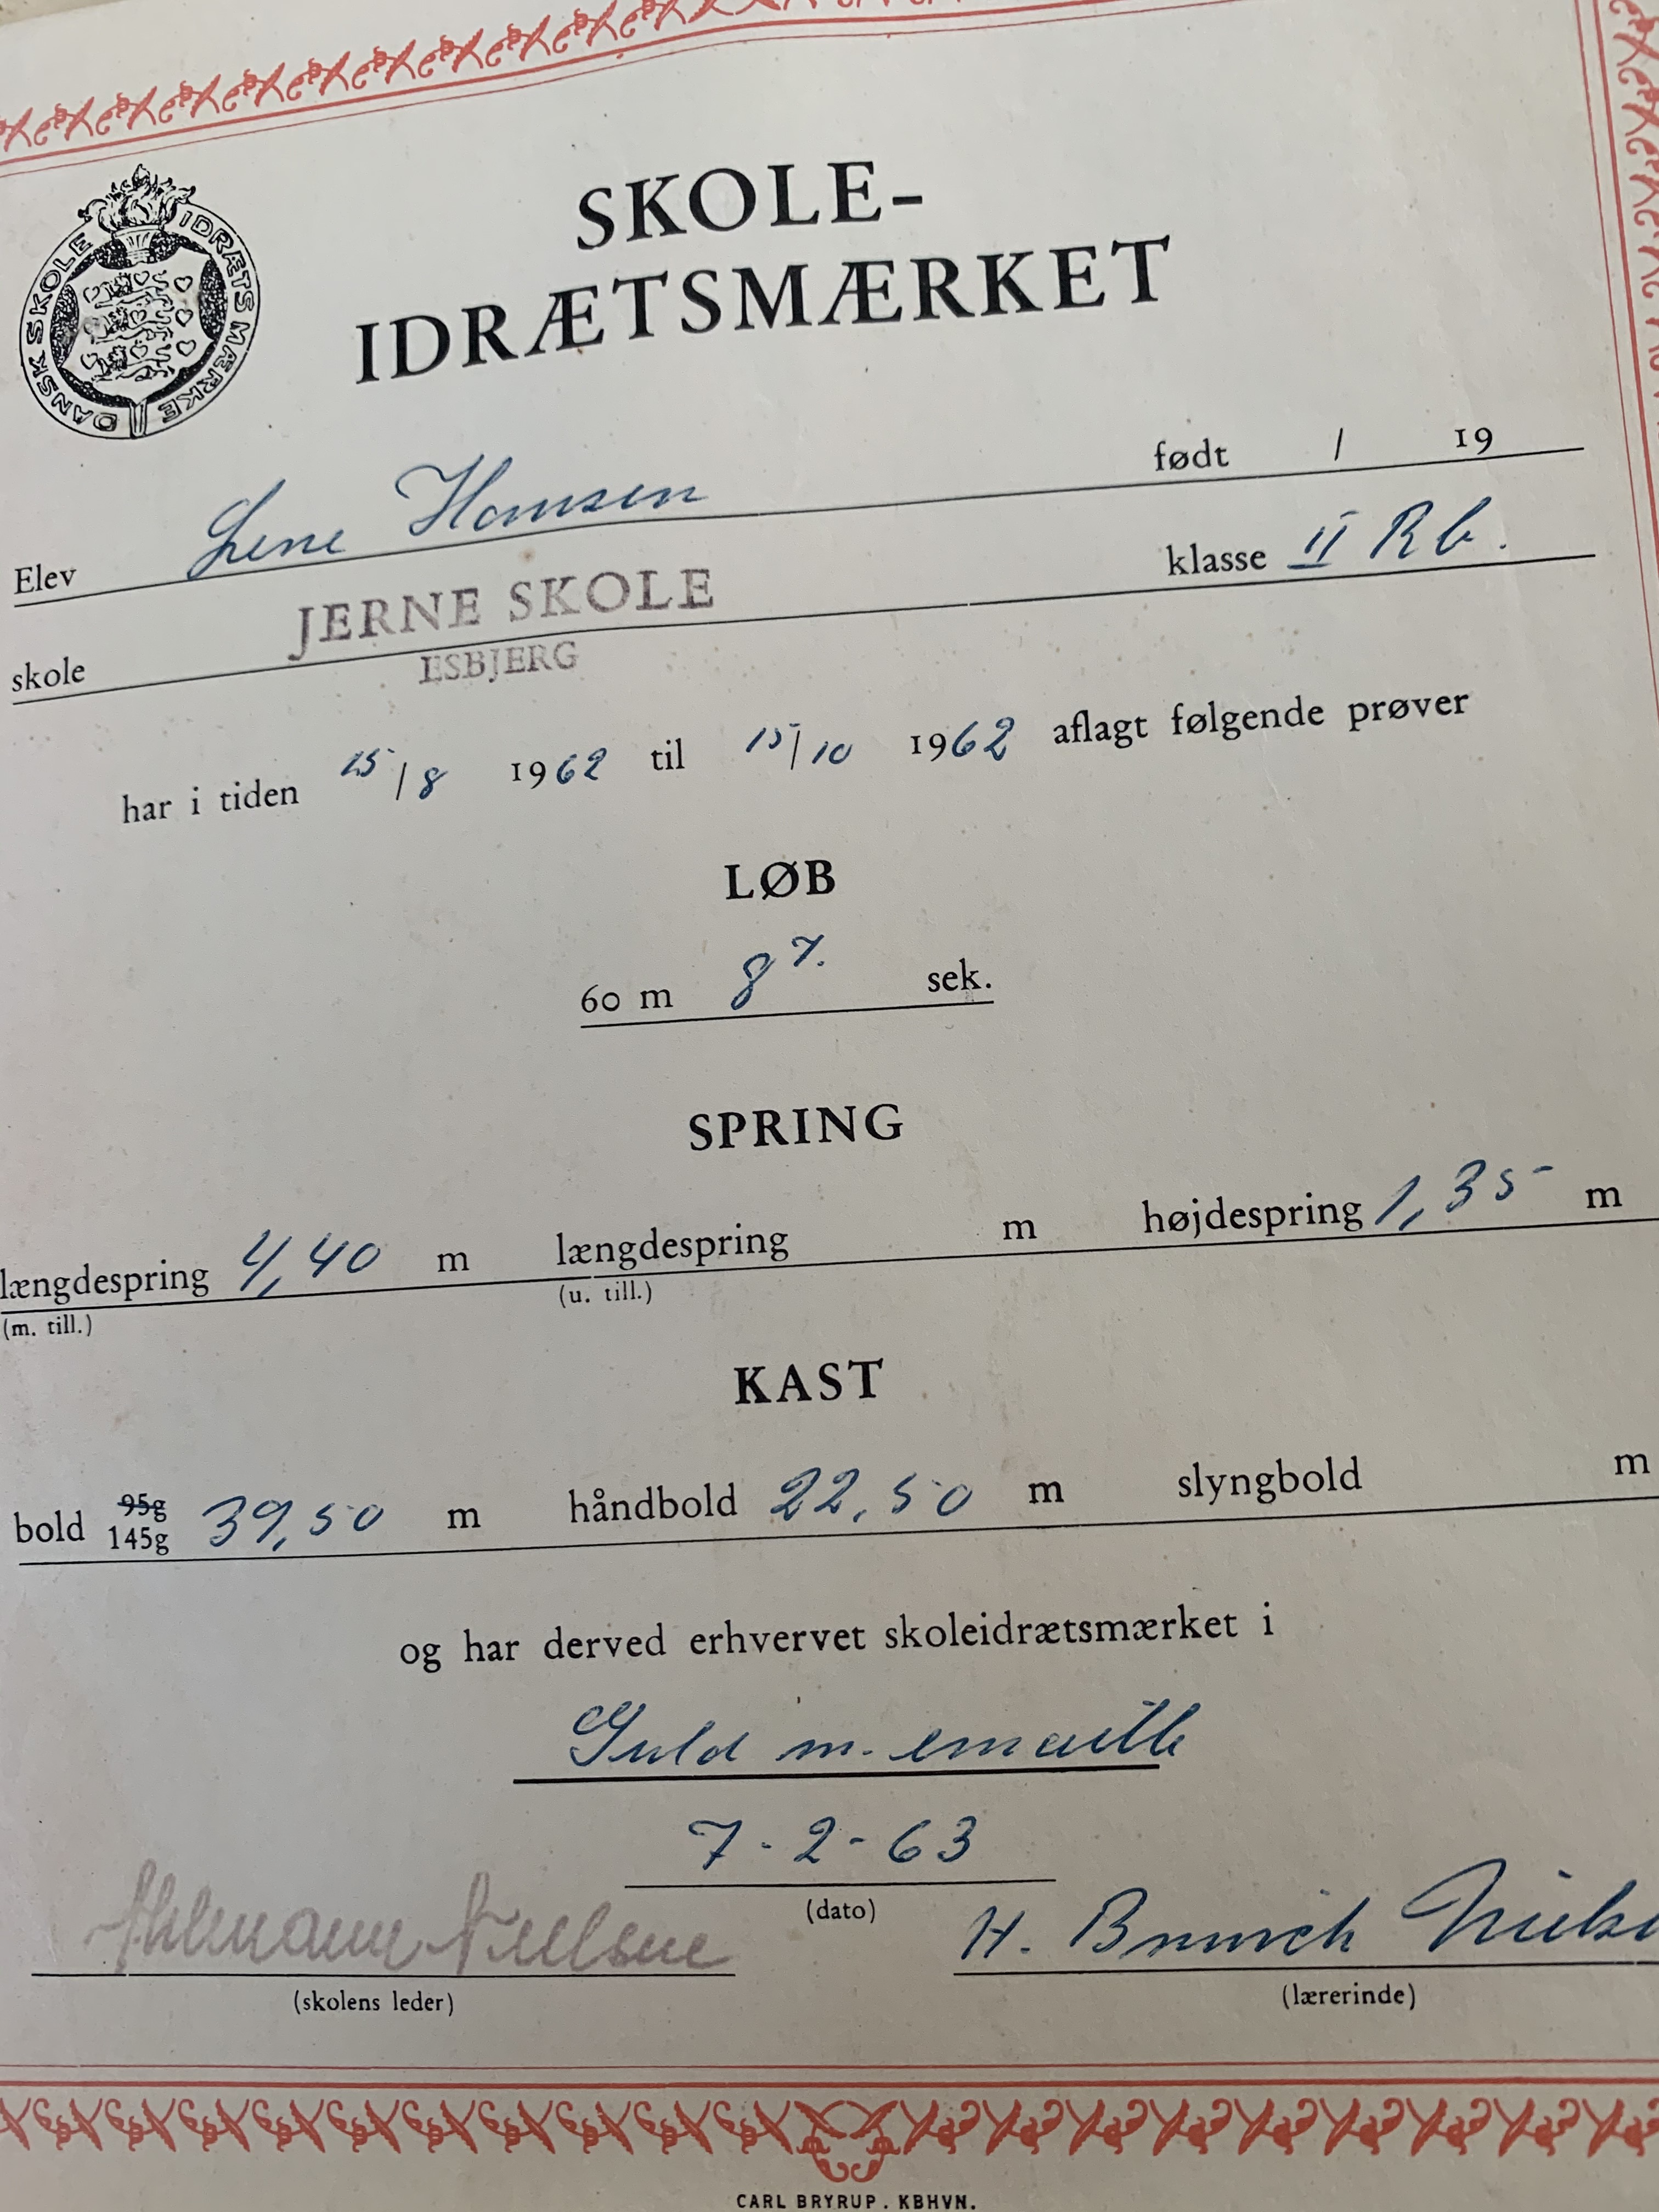 DANSK SKOLE IDRÆTSMÆRKE
SKOLE-
IDRÆTSMÆRKET
Elev Lene Hansen født / 19
skole JERNE SKOLE klasse II R b.
ESBJERG
har i tiden 15/8 1962 til 15/10 1962 aflagt følgende prøver
LØB
60 m 8 7. sek.
SPRING
længdespring 4,40 m længdespring m højdespring 1,35 m
(m. till.) (u. till.)
KAST
bold 95g 145g 39,50 m håndbold 22,50 m slyngbold m
og har derved erhvervet skoleidrætsmærket i
Guld m. emaille
7-2-63
(dato)
H.
(skolens leder) (lærerinde)
CARL BRYRUP. KBHVN.